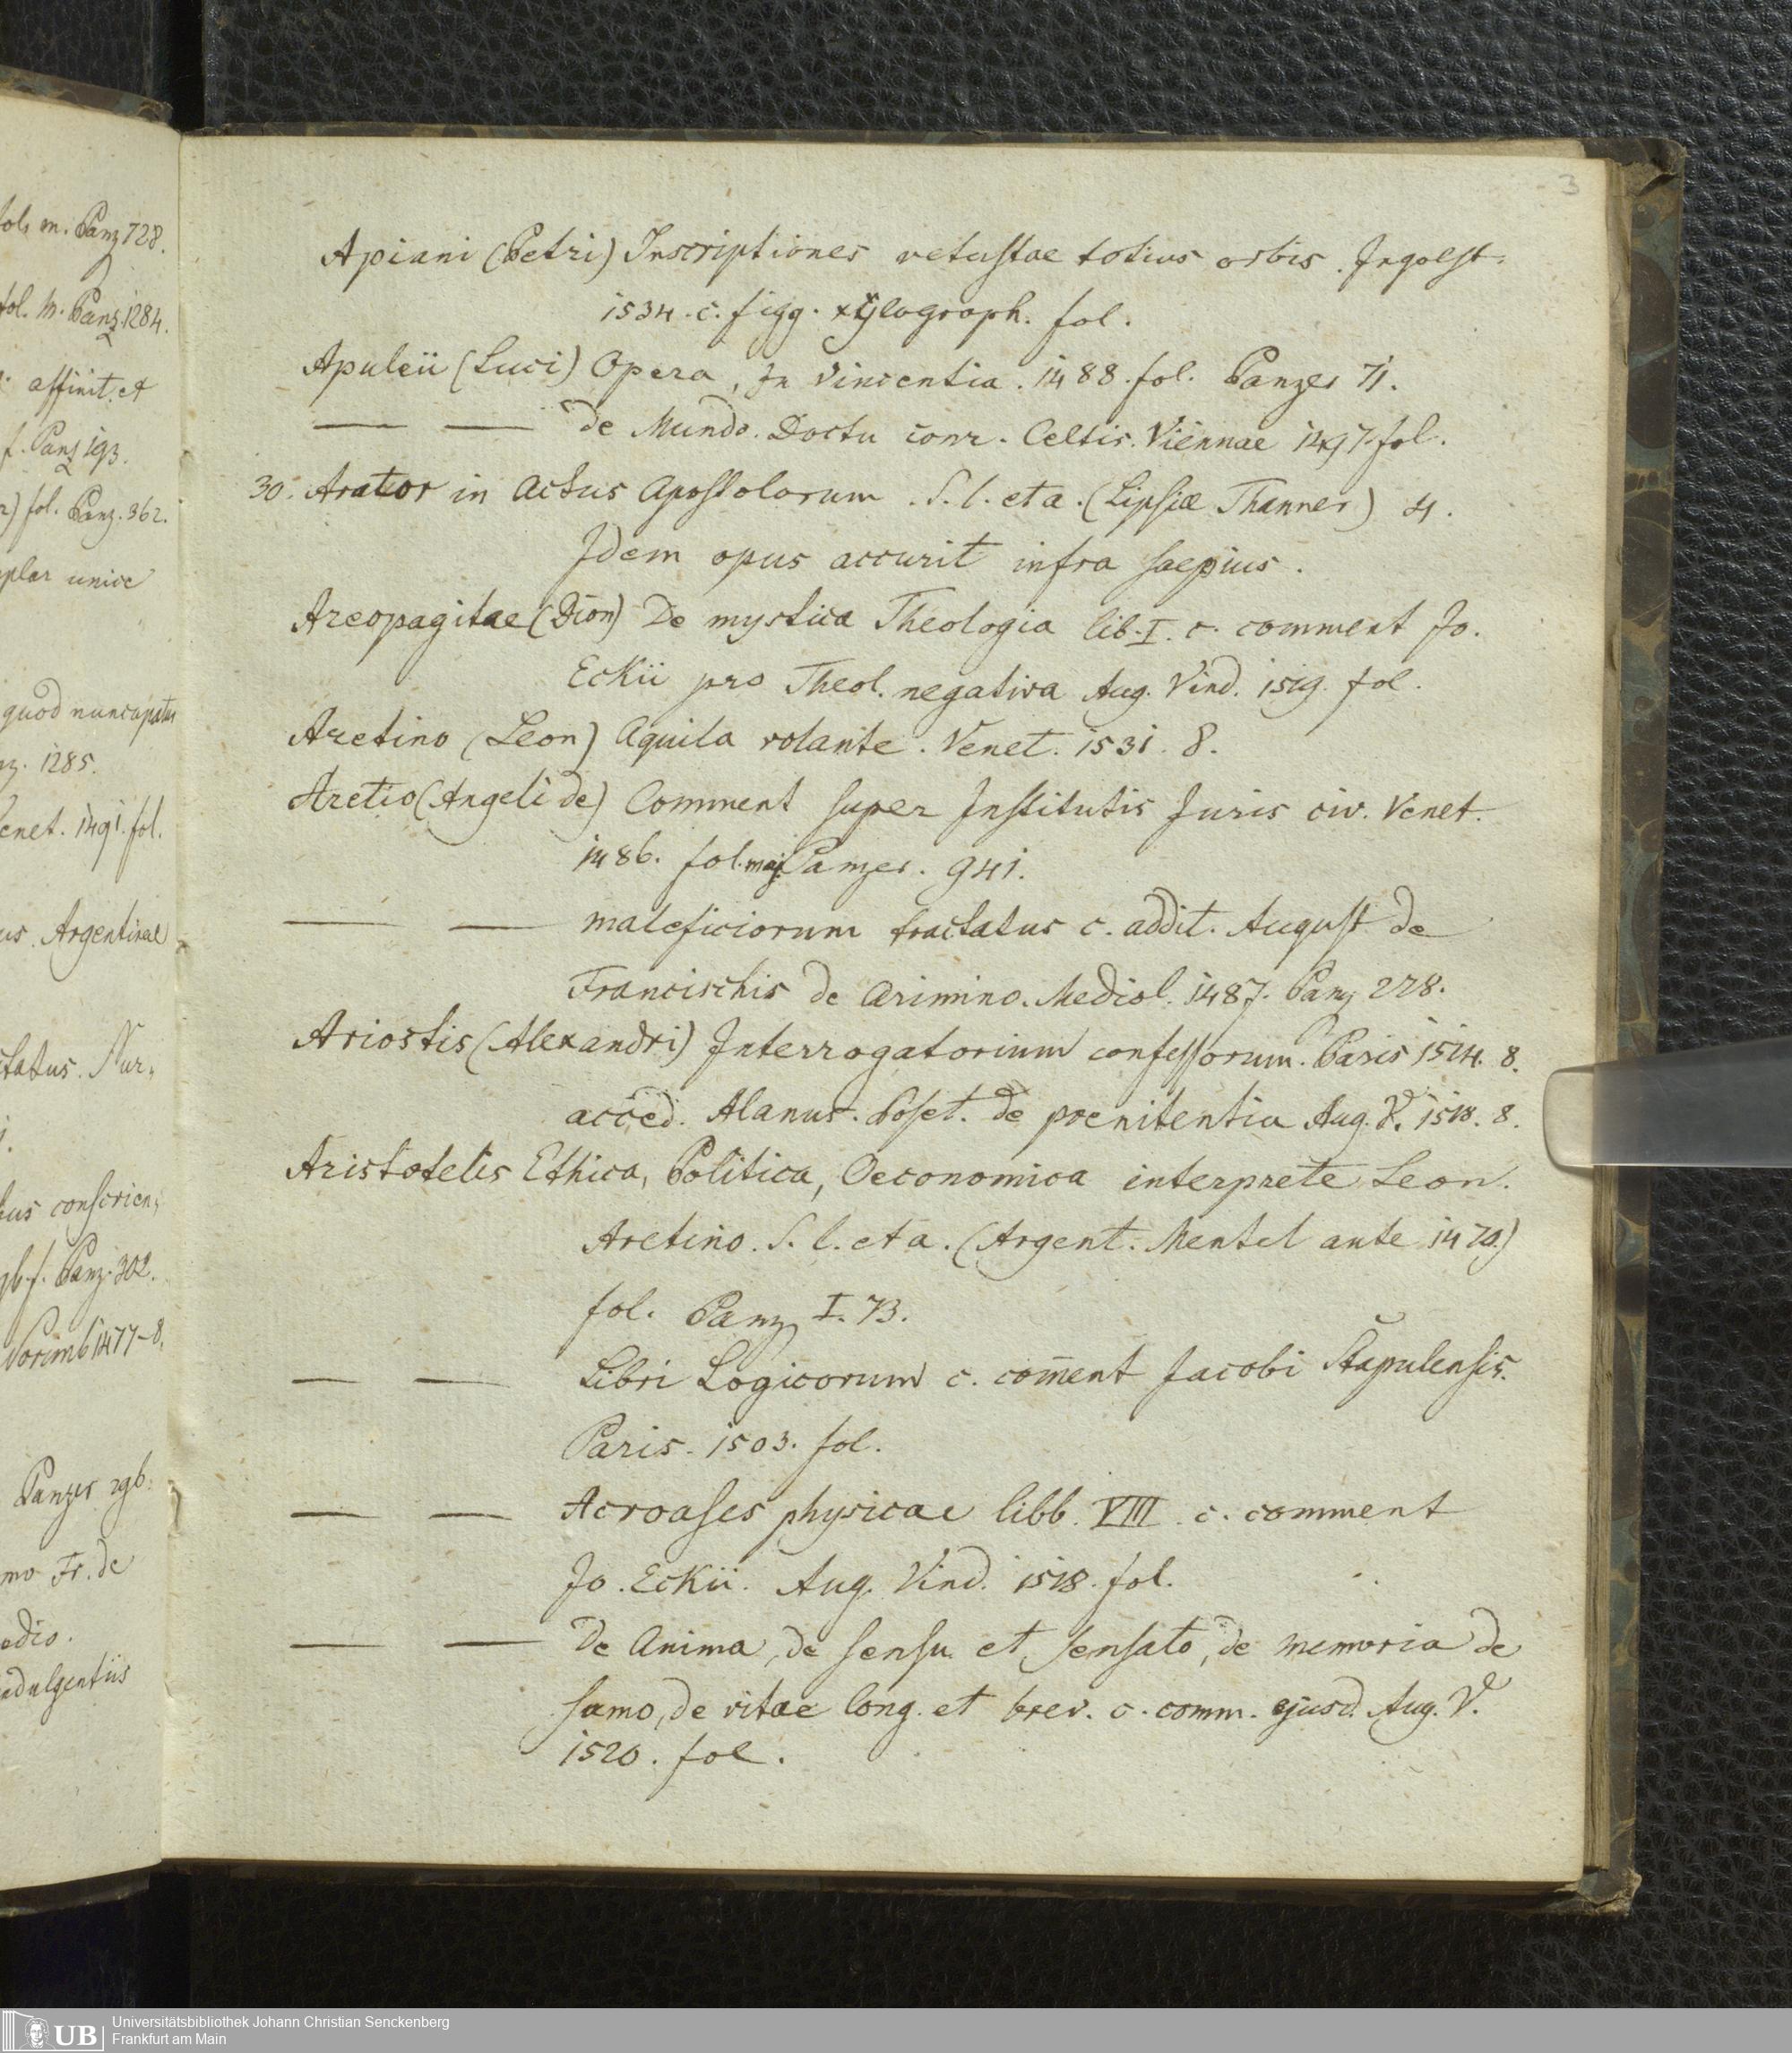 fol. m. Panz 728.
fol. m. Panz. 1284.
affinit. et
f. Panz 193.
fol. Panz. 362.
unice
quod nuncupatur
1285.
Venet. 1491. fol.
Argentinae
Nur,
conscrien,
Panz. 302.
Norimb 1477-8.
Panzer 296.
Fr. de
3
Apiani (Petri) Inscriptiones vetustae totius orbis. Ingolst.
1534. c. figg. xylograph. fol.
Apuleii (Luci) Opera, In Vincentia. 1488. fol. Panzer 71.
— — de Mundo. Doctu conr. Celtis. Viennae 1497. fol.
30. Arator in Actus Apostolorum. S. l. et a. (Lipsiae Thanner) 4.
Idem opus accurit infra saepius.
Areopagitae (Dion) De mystica Theologia lib. I. c. comment Jo.
Eckii pro Theol. negativa Aug. Vind. 1519. fol.
Aretino (Leon) Aquila volante. Venet. 1531. 8.
Aretio (Angeli de) Comment super Institutis Juris civ. Venet.
1486. fol. maj. Panzer. 941.
— — maleficiorum tractatus c. addit. August de
Francischis de Arimino. Mediol. 1487. Panz 228.
Ariostis (Alexandri) Interrogatorium confessorum. Paris 1514. 8.
acced. Alanus. Poset. de poenitentia Aug. V. 1518. 8.
Aristotelis Ethica, Politica, Oeconomica interprete Leon.
Aretino. S. l. et a. (Argent. Mentel ante 1470.)
fol. Panz I. 73.
— — Libri Logicorum c. com̄ent Jacobi Stapulensis.
Paris. 1503. fol.
— — Acroases physicae libb. VIII. c. comment
Jo. Eckii. Aug. Vind. 1518. fol.
— — De Anima, de sensu et sensato, de memoria de
somo, de vitae long. et brev. c. comm. ejusd. Aug. V.
1520. fol.
UB Universitätsbibliothek Johann Christian Senckenberg
Frankfurt am Main